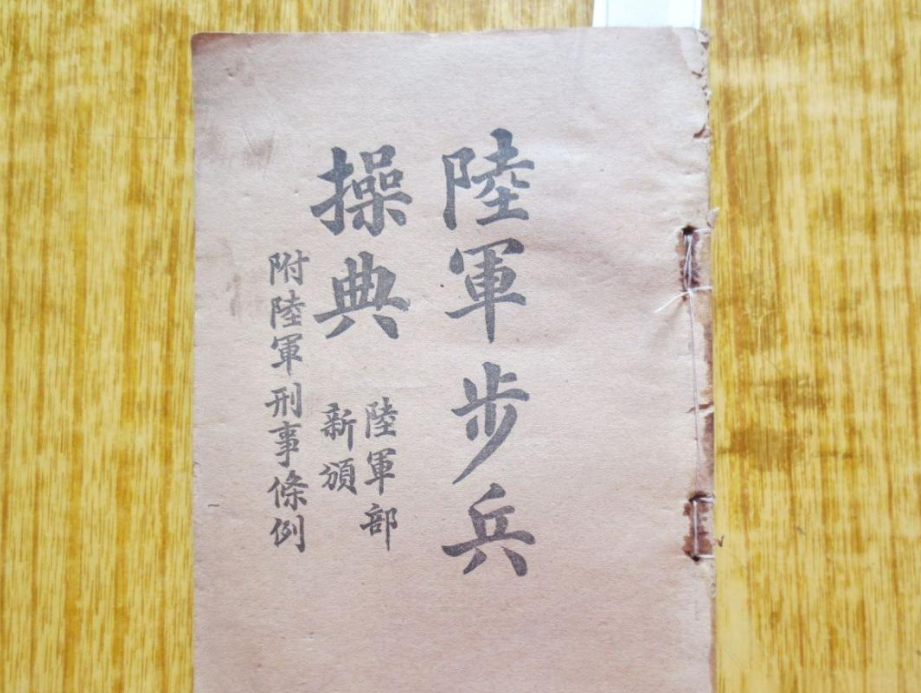 陸軍步兵
操典
陸軍部
新頒
附陸軍刑事條例